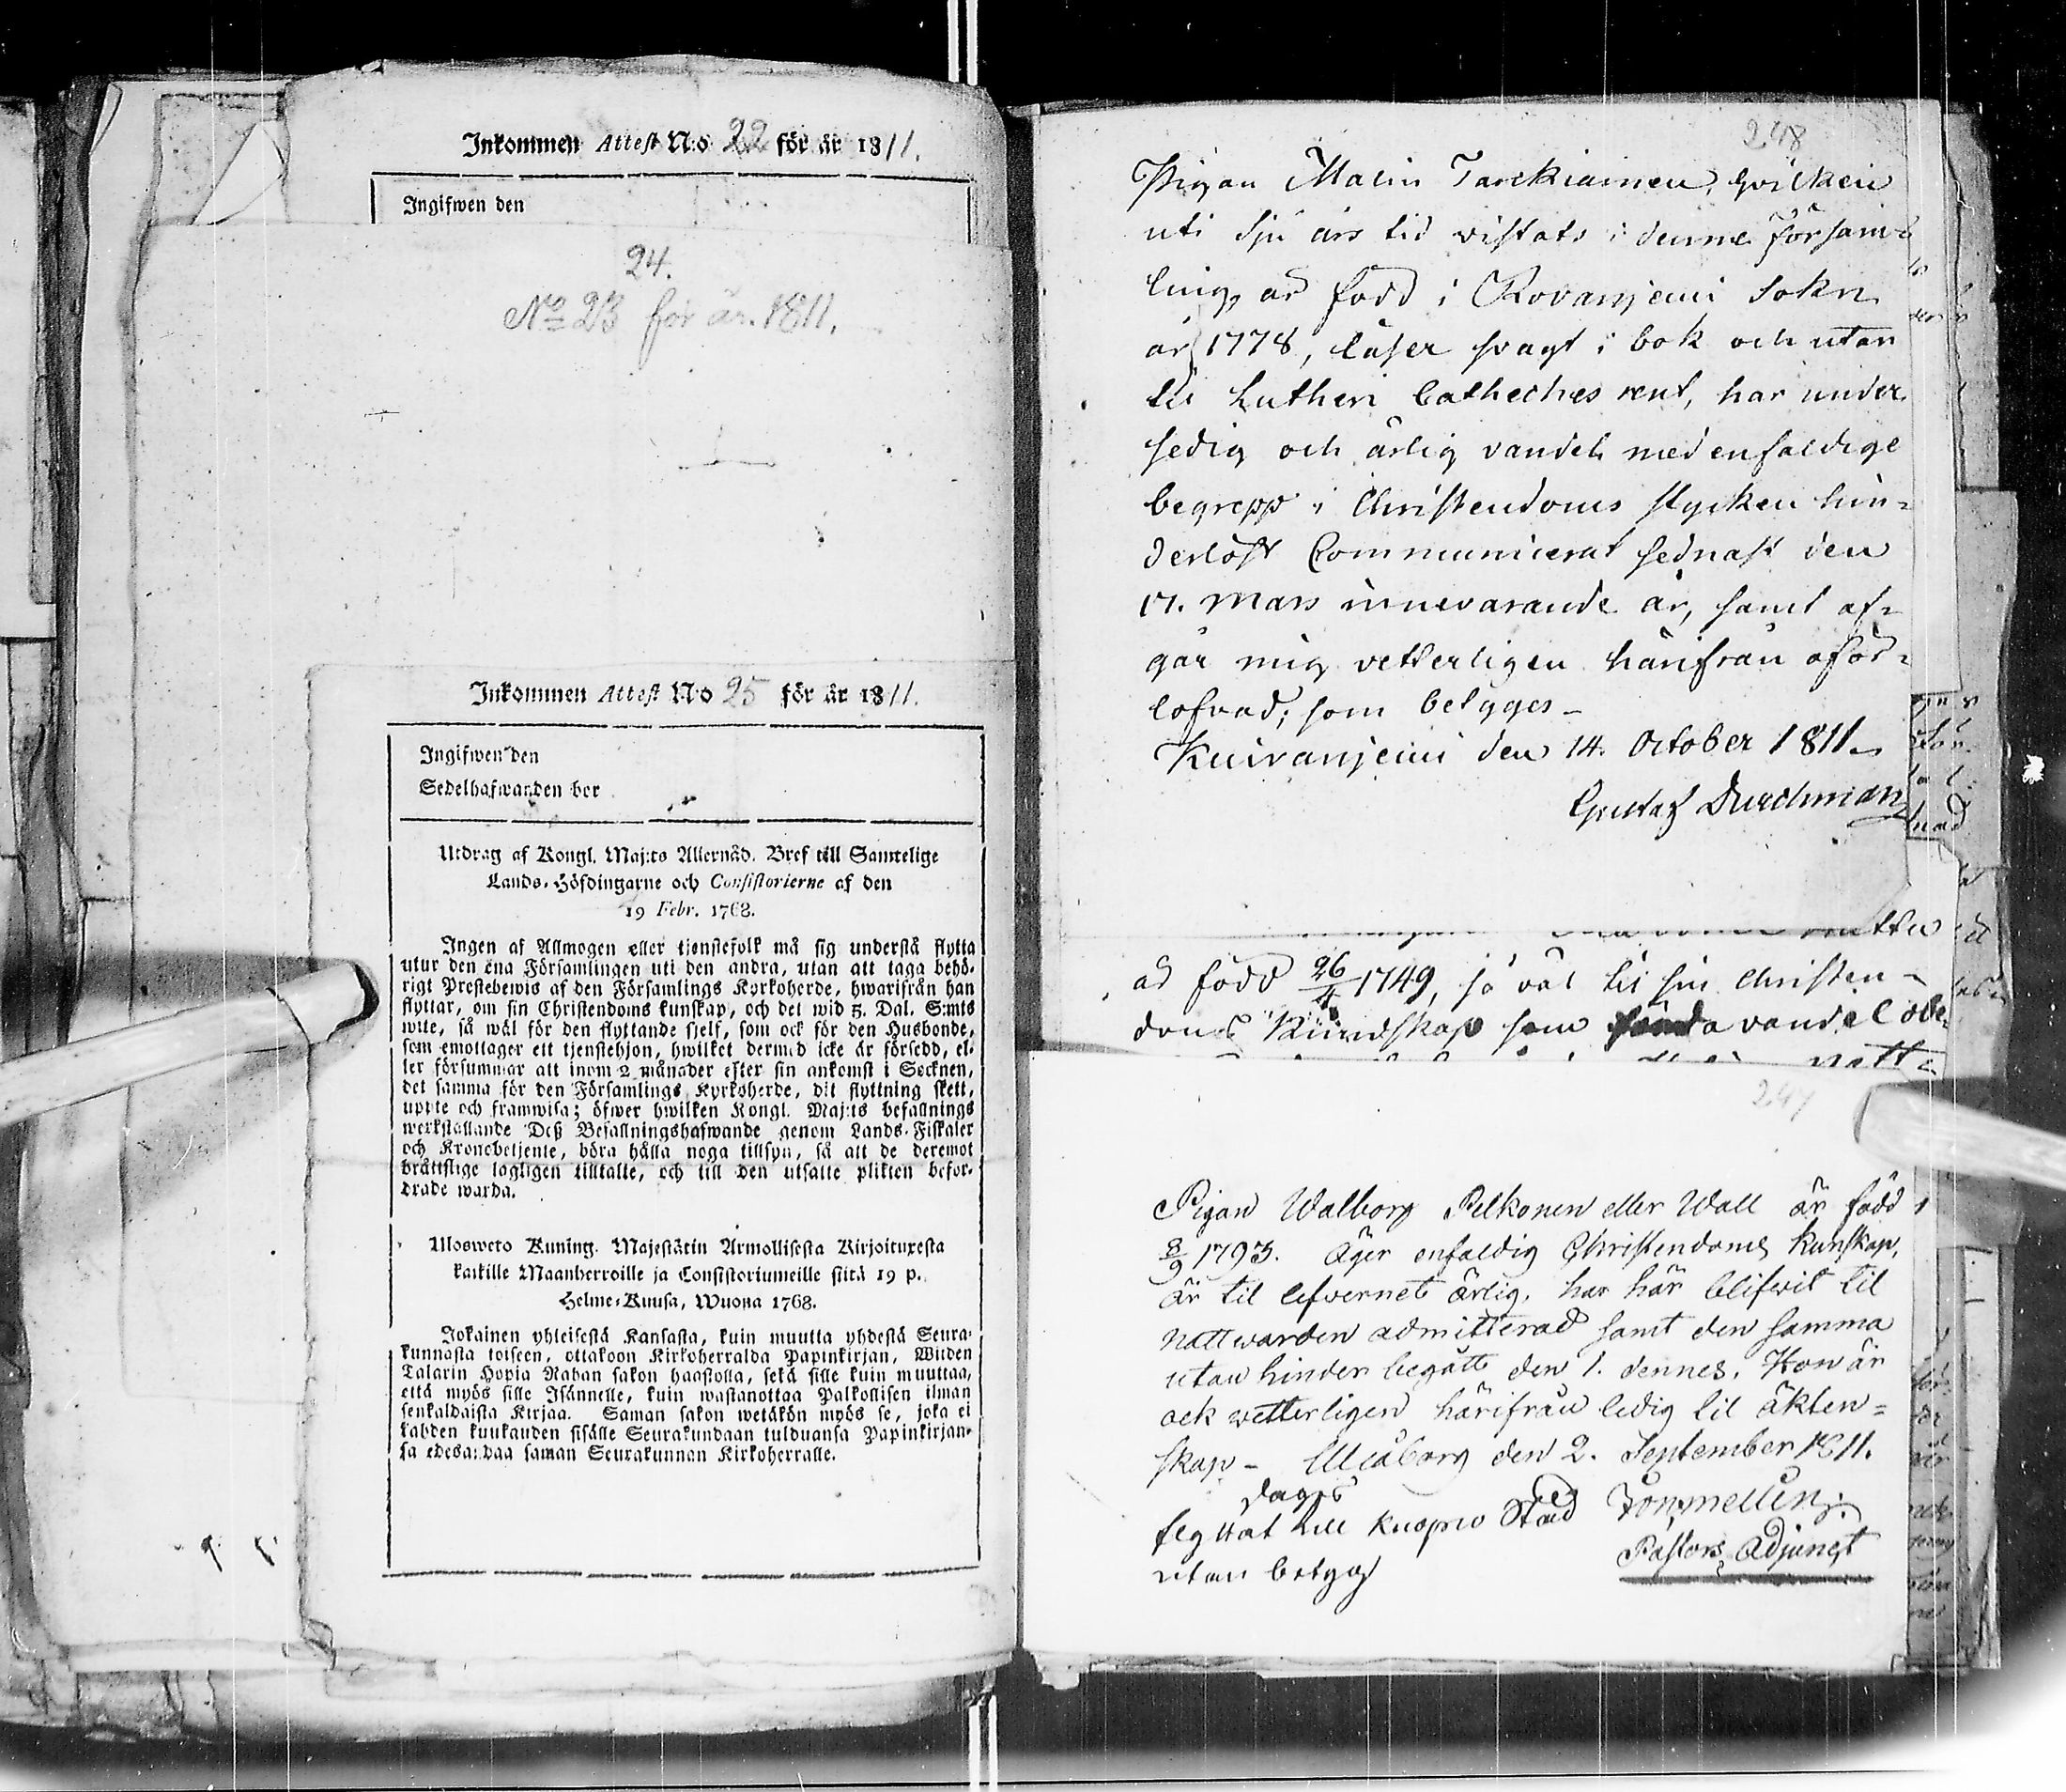 Inkommen Attest N:o 22 för år 1811.
Ingifwen den
24.
No 23 för år 1811.
Inkommen Attest N:o 25 för år 1811.
Ingifwen den
Sedelhafwanden bor
Utdrag af Kongl. Maj:ts Allernåd. Bref till Samtelige
Lands-Höfdingarne och Consistorierne af den
19 Febr. 1768.
Ingen af Allmogen eller tjenstefolk må sig understå flytta
utur den ena Församlingen uti den andra, utan att taga behö-
rigt Prestebewis af den Församlings Kyrkoherde, hwarifrån han
flyttar, om sin Christendoms kunskap, och det wid 5. Dal. S:mts
wite, så wäl för den flyttande sjelf, som ock för den Husbonde,
som emottager ett tjenstehjon, hwilket dermed icke är försedd, el-
ler försummar att inom 2 månader efter sin ankomst i Socknen,
det samma för den Församlings Kyrkoherde, dit flyttning skett,
uppte och framwisa; öfwer hwilken Kongl. Maj:ts befallnings
werkställande Deß Befallningshafwande genom Lands-Fiskaler
och Kronobetjente, böra hålla noga tillsyn, så att de deremot
bråttslige lagligen tilltalte, och till den utsatte plikten befor-
drade warda.
Ulosweto Kuning. Majestätin Armollisesta Kirjoituxesta
kaikille Maanherroille ja Consistoriumeille siitä 19 p.
Helme-Kuusa, Wuona 1768.
Jokainen yhteisestä Kansasta, kuin muutta yhdestä Seura-
kunnasta toiseen, ottakoon Kirkoherralda Papinkirjan, Wiiden
Talarin Hopia Rahan sakon haastolla, sekä sille kuin muuttaa,
että myös sille Isännelle, kuin wastanottaa Palkollisen ilman
senkaldaista Kirjaa. Saman sakon wetäkön myös se, joka ei
kahden kuukauden sisälle Seurakundaan tulduansa Papinkirjan-
sa edesanna saman Seurakunnan Kirkoherralle.
248
Pigan Malin Tarckiainen, hvilken
uti sju års tid vistats i denne försam-
ling, är född i Rovanjemi Sokn
år 1778, läser svagt i bok och utan
til Lutheri Catheches rent, har under
sedig och ärlig vandel med enfaldige
begrepp i Christendoms stycken hin-
derlöst Communicerat sednast den
17. Mars innevarande år, samt af-
går mig vetterligen härifrån oför-
lofvad; som betyges –
Kuivanjemi den 14. October 1811.
Gustaf Durchman
ad född 26/4 1749, så väl til sin Christen-
doms Kundskap som vandel obe-
247
Pigan Walborg Pelkonen eller Wall är född
8/9 1793. Äger enfaldig Christendoms Kunskap,
är til lefvernet ärlig, har här blifwit til
nattwarden admitterad samt den samma
utan hinder begått den 1. dennes. Hon är
ock wetterligen härifrån ledig til äkten=
skap – Uleåborg den 2. September 1811.
flyttat till Kuopio Stad
utan betyg
Pastors Adjunct